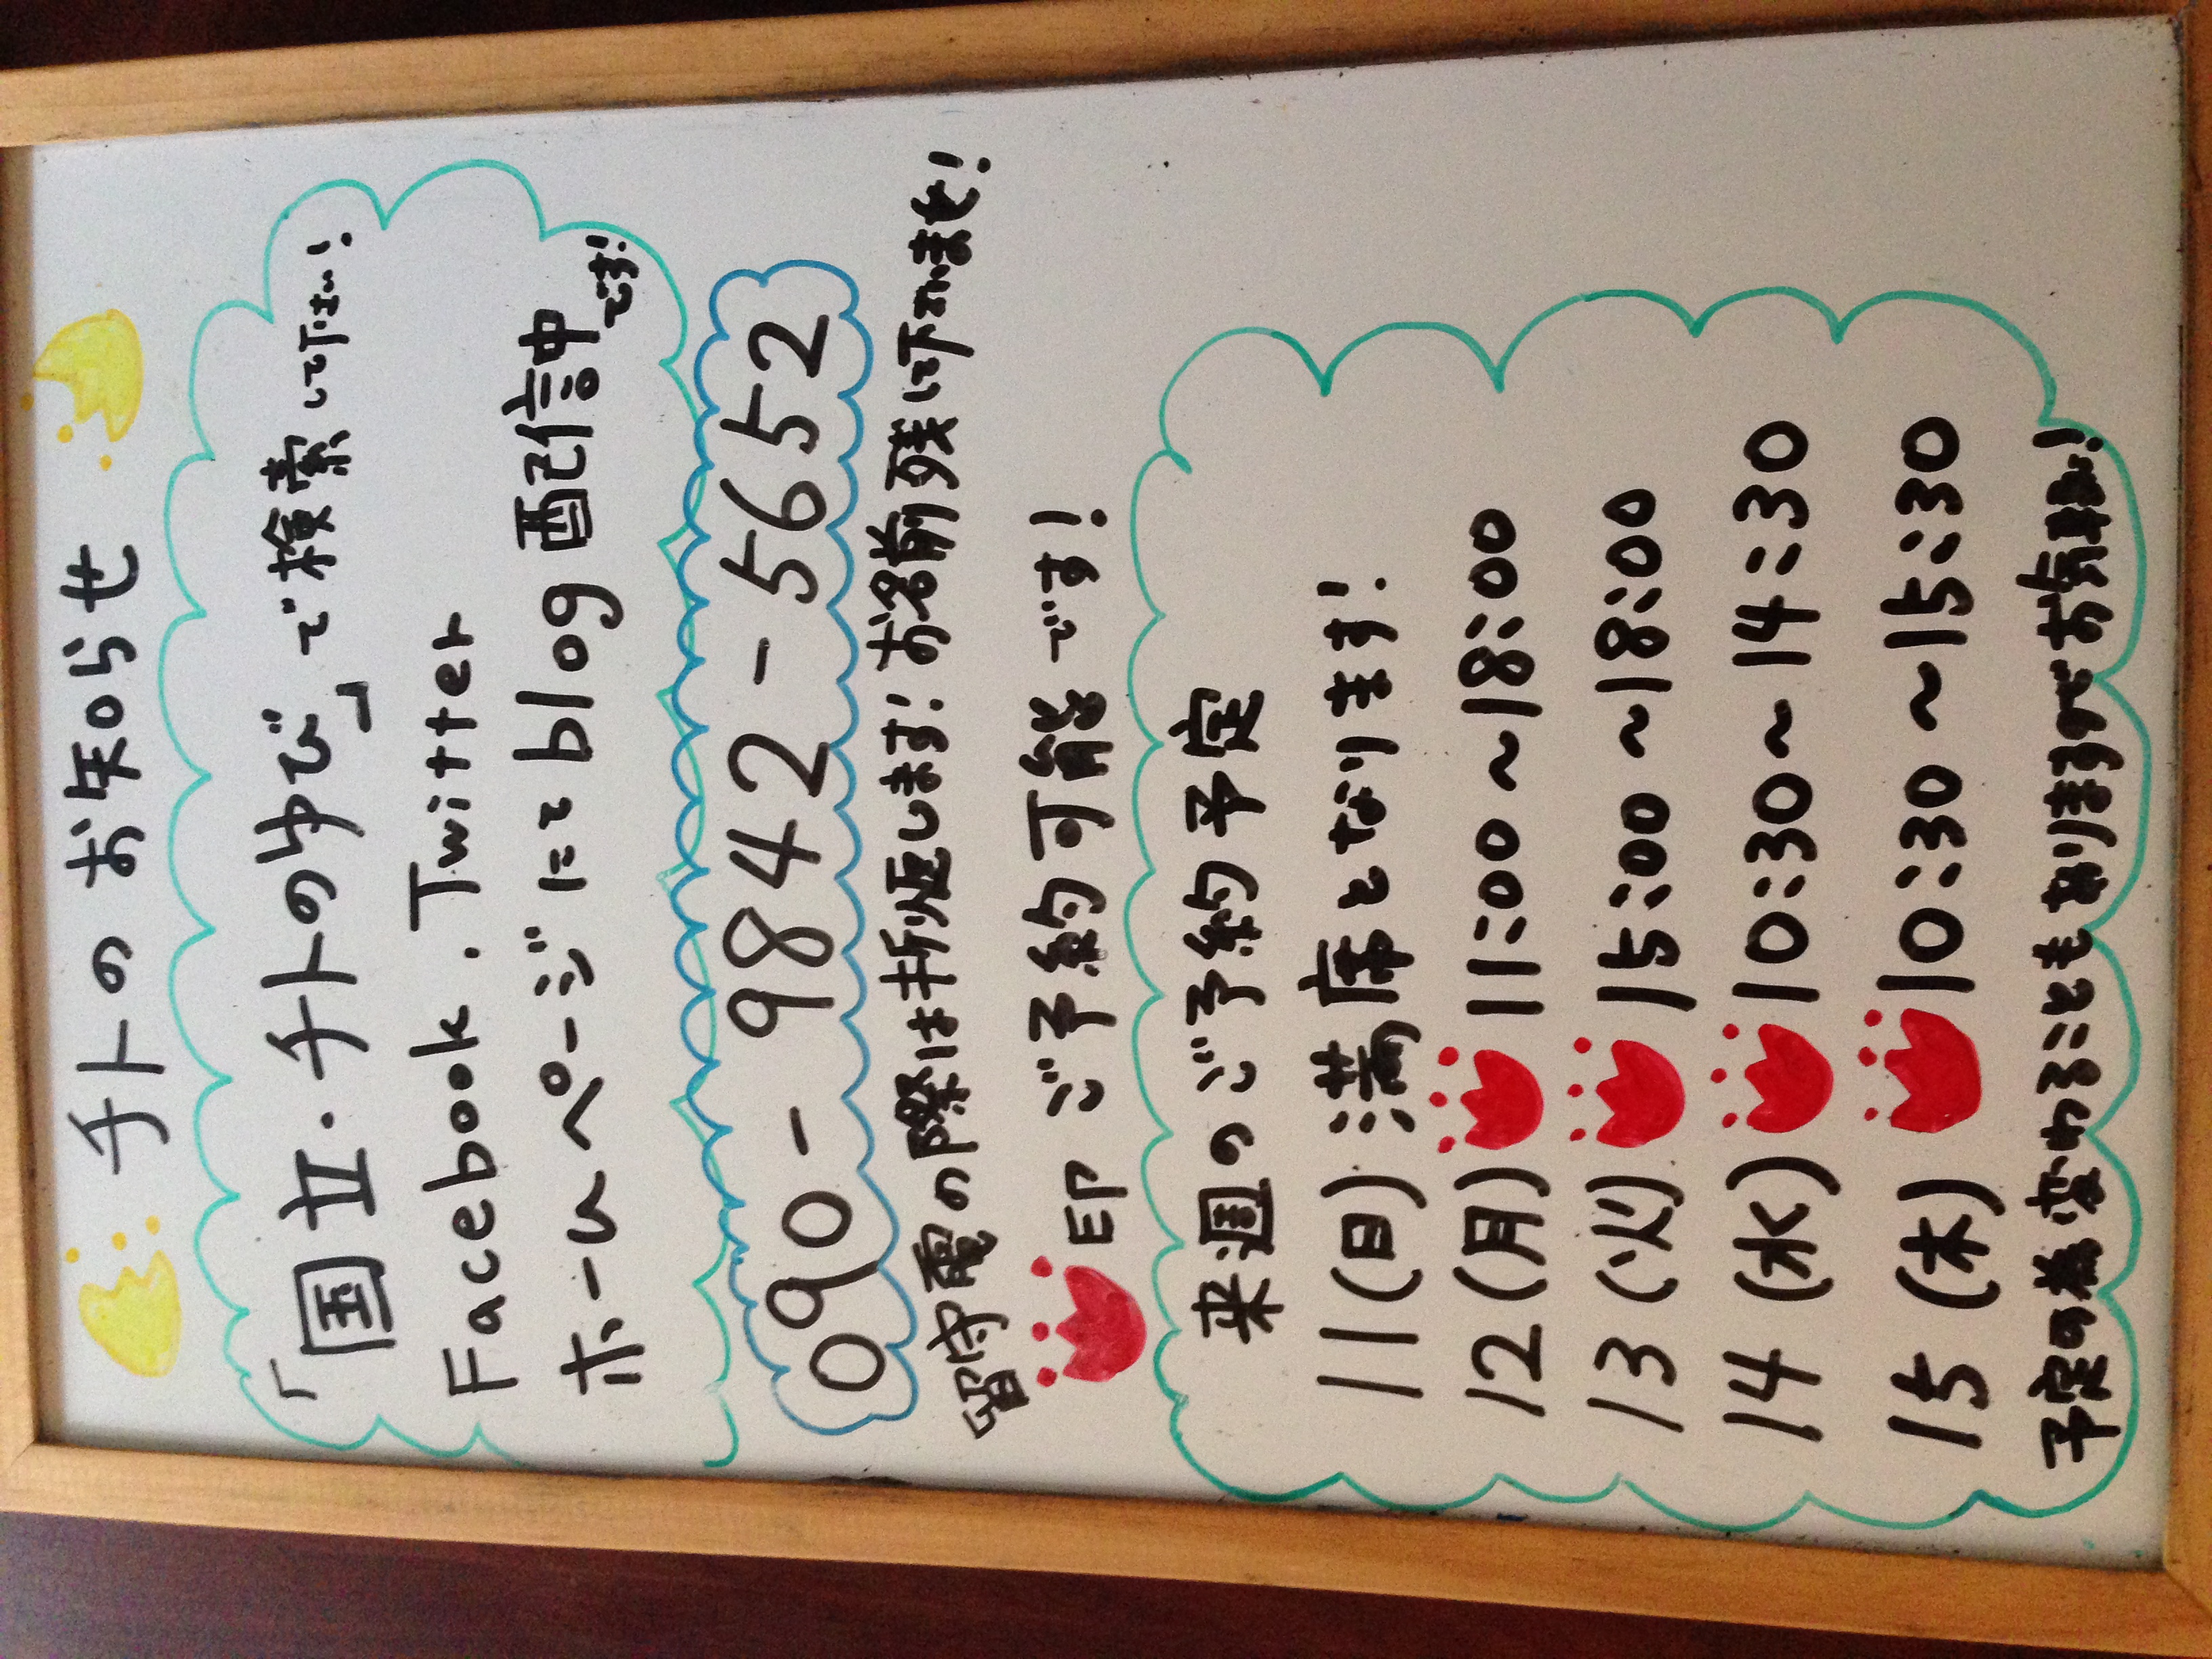 チトのお知らせ
「国立.チトのゆび」で検索して下さい!
Facebook.Twitter
ホームページにてblog配信中です!
090-9842-5652
留守電の際は折返します!お名前残して下さいませ!
印 ご予約可能です!
来週のご予約予定
11(日)満席となります!
12(月) 11:00~18:00
13(火) 15:00~18:00
14(水) 10:30~14:30
15(木) 10:30~15:30
予定の為、変わることもありますのでお気軽に!